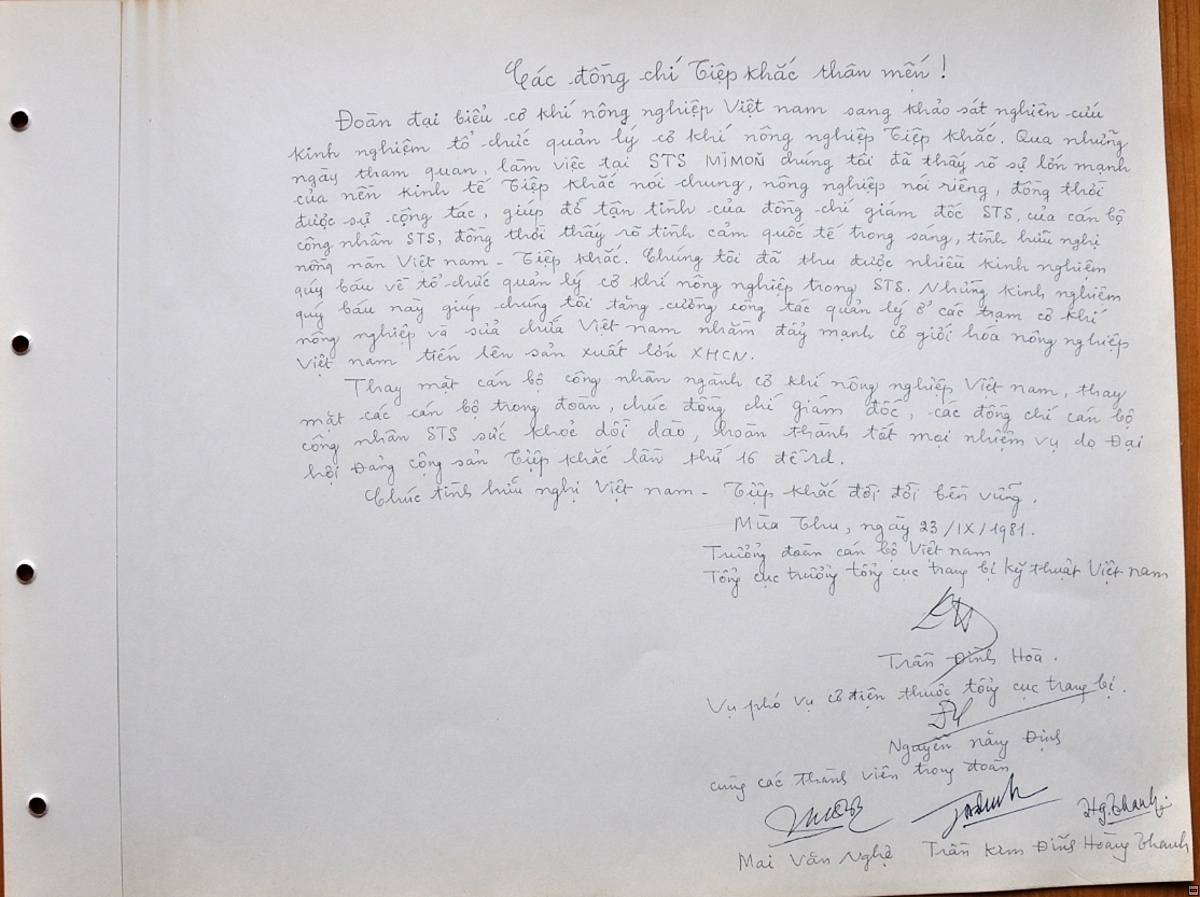 Các đồng chí Tiệp khắc thân mến !
Đoàn đại biểu cơ khí nông nghiệp Việt nam sang khảo sát nghiên cứu
kinh nghiệm tổ chức quản lý cơ khí nông nghiệp Tiệp khắc. Qua những
ngày tham quan, làm việc tại STS MIMOŇ chúng tôi đã thấy rõ sự lớn mạnh
của nền kinh tế Tiệp khắc nói chung, nông nghiệp nói riêng, đồng thời
được sự cộng tác, giúp đỡ tận tình của đồng chí giám đốc STS, của cán bộ
công nhân STS, đồng thời thấy rõ tình cảm quốc tế trong sáng, tình hữu nghị
nồng nàn Việt nam - Tiệp khắc. Chúng tôi đã thu được nhiều kinh nghiệm
quý báu về tổ chức quản lý cơ khí nông nghiệp trong STS. Những kinh nghiệm
quý báu này giúp chúng tôi tăng cường công tác quản lý ở các trạm cơ khí
nông nghiệp và sửa chữa Việt nam nhằm đẩy mạnh cơ giới hóa nông nghiệp
Việt nam tiến lên sản xuất lớn XHCN.
Thay mặt cán bộ công nhân ngành cơ khí nông nghiệp Việt nam, thay
mặt các cán bộ trong đoàn, chúc đồng chí giám đốc, các đồng chí cán bộ
công nhân STS sức khoẻ dồi dào, hoàn thành tốt mọi nhiệm vụ do Đại
hội Đảng cộng sản Tiệp khắc lần thứ 16 đề ra.
Chúc tình hữu nghị Việt nam - Tiệp khắc đời đời bền vững.
Mùa Thu, ngày 23/IX/1981.
Trưởng đoàn cán bộ Việt nam
Tổng cục trưởng tổng cục trang bị kỹ thuật Việt nam
Trần Đình Hoà.
Vụ phó vụ cơ điện thuộc tổng cục trang bị.
Nguyễn năng Định
cùng các thành viên trong đoàn
Hg.Thanh.
Mai Văn Nghệ Trần Kim Đĩnh Hoàng Thanh